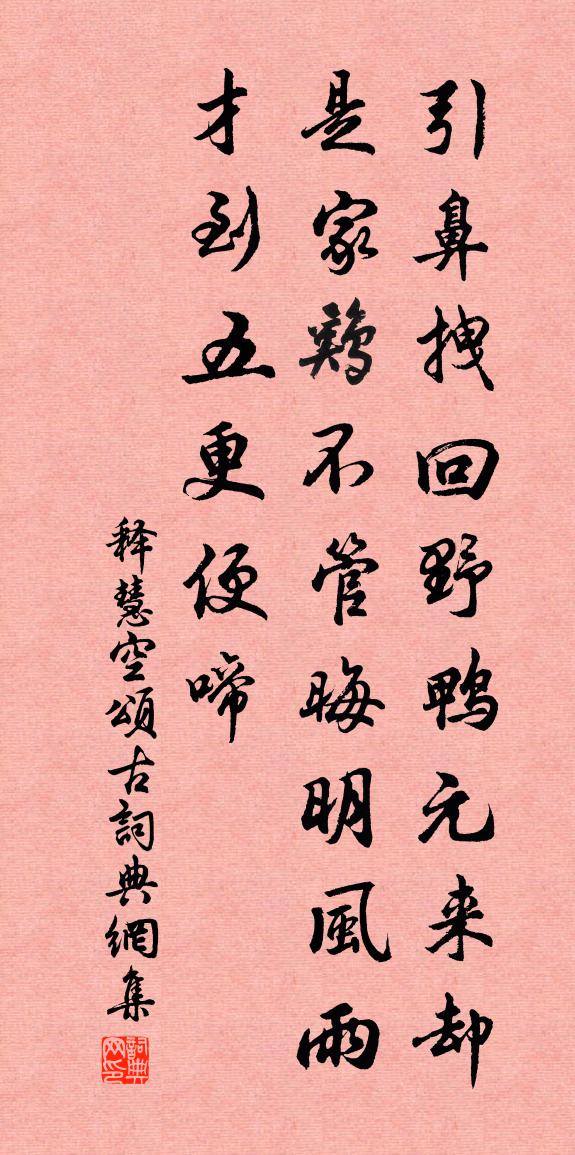 引鼻拽回野鸭元来却
是家鶏不管晦明風雨
才到五更便啼
释慧空頌古詞典網集
詞典网印